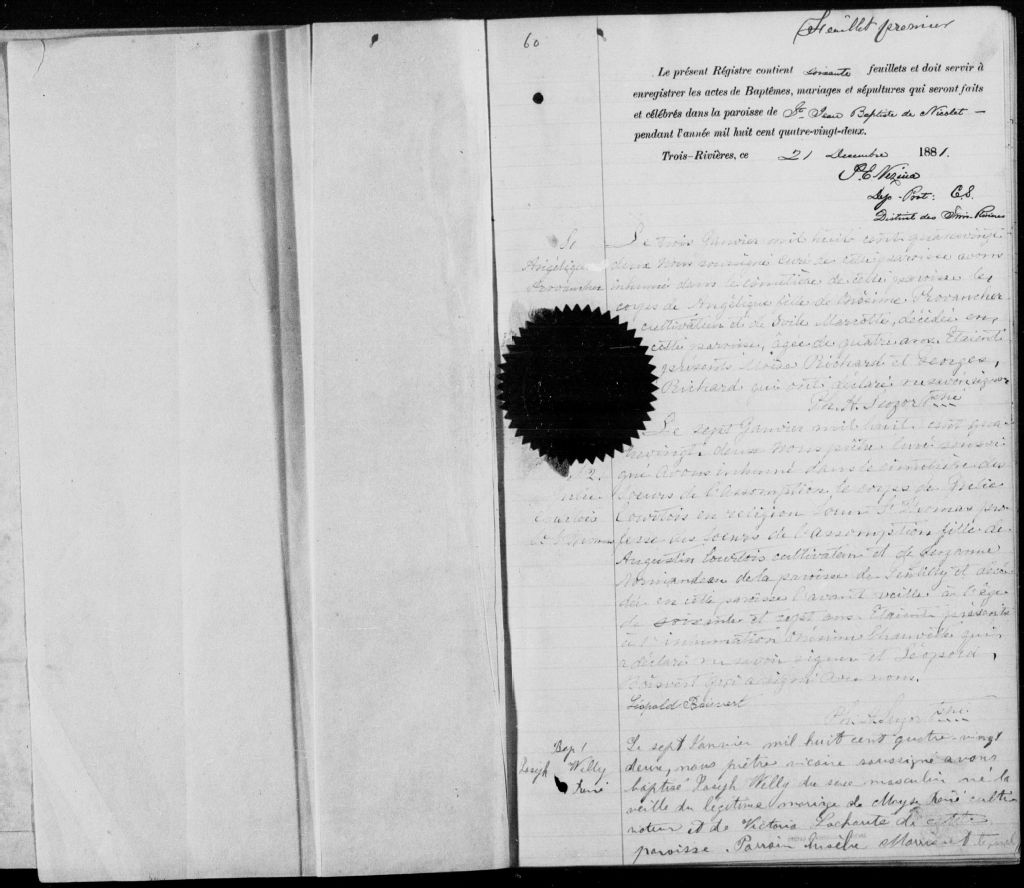 Feuillet premier
60
Le présent Régistre contient soixante feuillets et doit servir à
enregistrer les actes de Baptêmes, mariages et sépultures qui seront faits
et célébrés dans la paroisse de St Jean Baptiste de Nicolet —
pendant l'année mil huit cent quatre-vingt-deux.
Trois-Rivières, ce 21 Decembre 1881.
Dep - Prot: C.S.
District des Trois Rivières
Angélique
Provancher
Le trois Janvier mil huit cent quatrevingt
deux nous soussigné curé de cette paroisse avons
inhumé dans le cimetière de cette paroisse le
corps de Angélique fille de Onésime Provancher
cultivateur et de Marcotte, décédée en
cette paroisse, agée de quatre ans. Etaient
présents Moïse Richard et Georges
Richard qui ont déclaré ne savoir signer
Ph. H. Suzor Ptre
2.
Julie
Courtois
Le sept Janvier mil huit cent qua
trevingt deux nous prêtre curé soussi
gné avons inhumé dans le cimetière des
Soeurs de l'assomption le corps de Julie
Courtois en religion Soeur St Thomas pro
fesse des Soeurs de l'assomption fille de
Augustin Courtois cultivateur et de Suzanne
Normandeau de la paroisse de Gentilly et décé
dée en cette paroisse l'avant veille à l'âge
de soixante et sept ans. Etaient présents
à l'inhumation Onésime qui
a déclaré ne savoir signer et Léopold
Boisvert qui a signé avec nous.
Léopold Boisvert
Ph. H. Suzor Ptre
Bap 1
Joseph Willy
René
Le sept Janvier mil huit cent quatre-vingt
deux, nous prêtre vicaire soussigné avons
baptisé Joseph Willy du sexe masculin né la
veille du légitime mariage de Moyse René culti
vateur et de Victoria de cette
paroisse. Parrain